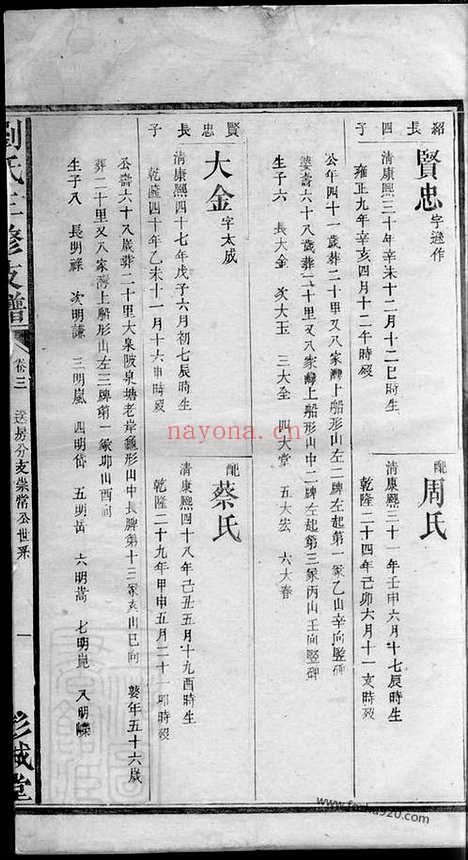 紹四子
長
賢忠字遜作
清康熙三十年辛未十二月十二巳時生
雍正九年辛亥四月十二午時歿
配周氏
清康熙三十一年壬申六月十七辰時生
乾隆二十四年己卯六月十一亥時歿
公年四十一歲葬二十里又八家灣上船形山左二牌左起第一冢乙山辛向豎碑
婆壽六十八歲葬二十里又八家灣上船形山中二牌左起第三冢丙山壬向豎碑
生子六 長大金 次大玉 三大全 四大堂 五大宏 六大春
賢忠長子
大金字太成
清康熙四十七年戊子六月初七辰時生
乾隆四十年乙未十一月十六申時歿
配蔡氏
清康熙四十八年己丑五月十九酉時生
乾隆二十九年甲申五月二十一卯時歿
公壽六十八歲葬二十里大泉陂泉塘老韋龜形山中長牌第十三冢亥山巳向 婆年五十六歲
葬二十里又八家灣上船形山左三牌第一冢卯山酉向
生子八 長明祿 次明謙 三明嵐 四明岱 五明岳 六明嵩 七明崑 八明嶸
劉氏三修支譜
卷三 遜房分支崇常公世系
一
彭城堂
nayona.cn
www.foxhu920.com